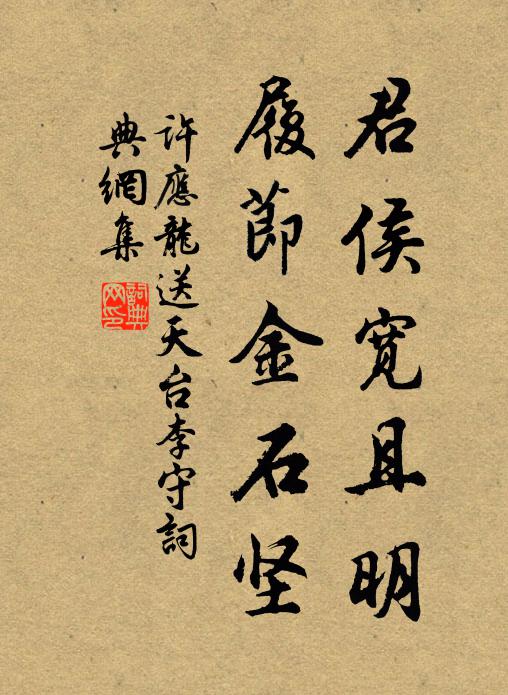 君侯寬且明
履節金石坚
許應龍送天台李守詞
典網集
詞典网印